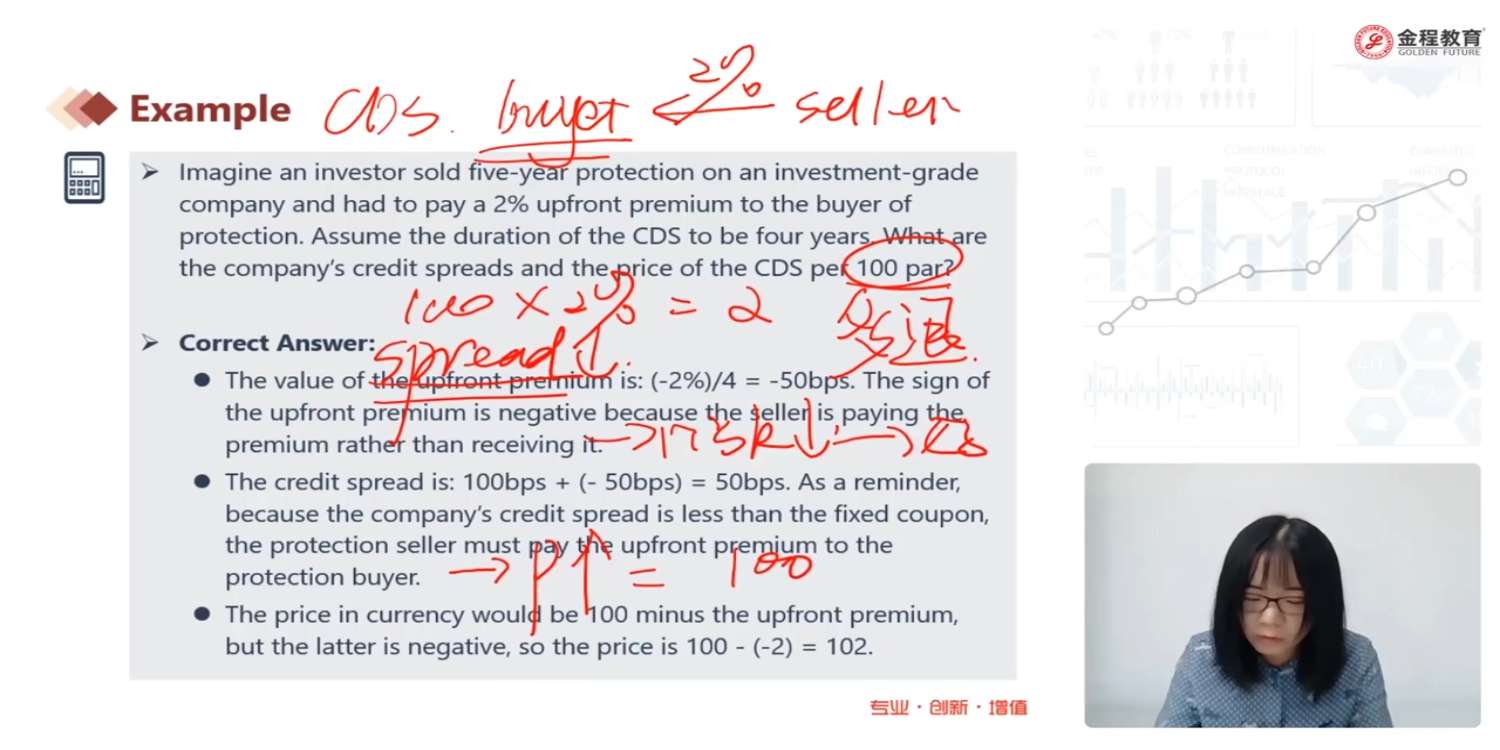 金程教育
GOLDEN FUTURE
Example
CDS. buyer 2% seller
Imagine an investor sold five-year protection on an investment-grade
company and had to pay a 2% upfront premium to the buyer of
protection. Assume the duration of the CDS to be four years. What are
the company's credit spreads and the price of the CDS per 100 par?
100 × 2% = 2 多退
Correct Answer:
spread↓.
The value of the upfront premium is: (-2%)/4 = -50bps. The sign of
the upfront premium is negative because the seller is paying the
premium rather than receiving it.
The credit spread is: 100bps + (- 50bps) = 50bps. As a reminder,
because the company's credit spread is less than the fixed coupon,
the protection seller must pay the upfront premium to the
protection buyer.
→ P↑ = 100
The price in currency would be 100 minus the upfront premium,
but the latter is negative, so the price is 100 - (-2) = 102.
专业·创新·增值